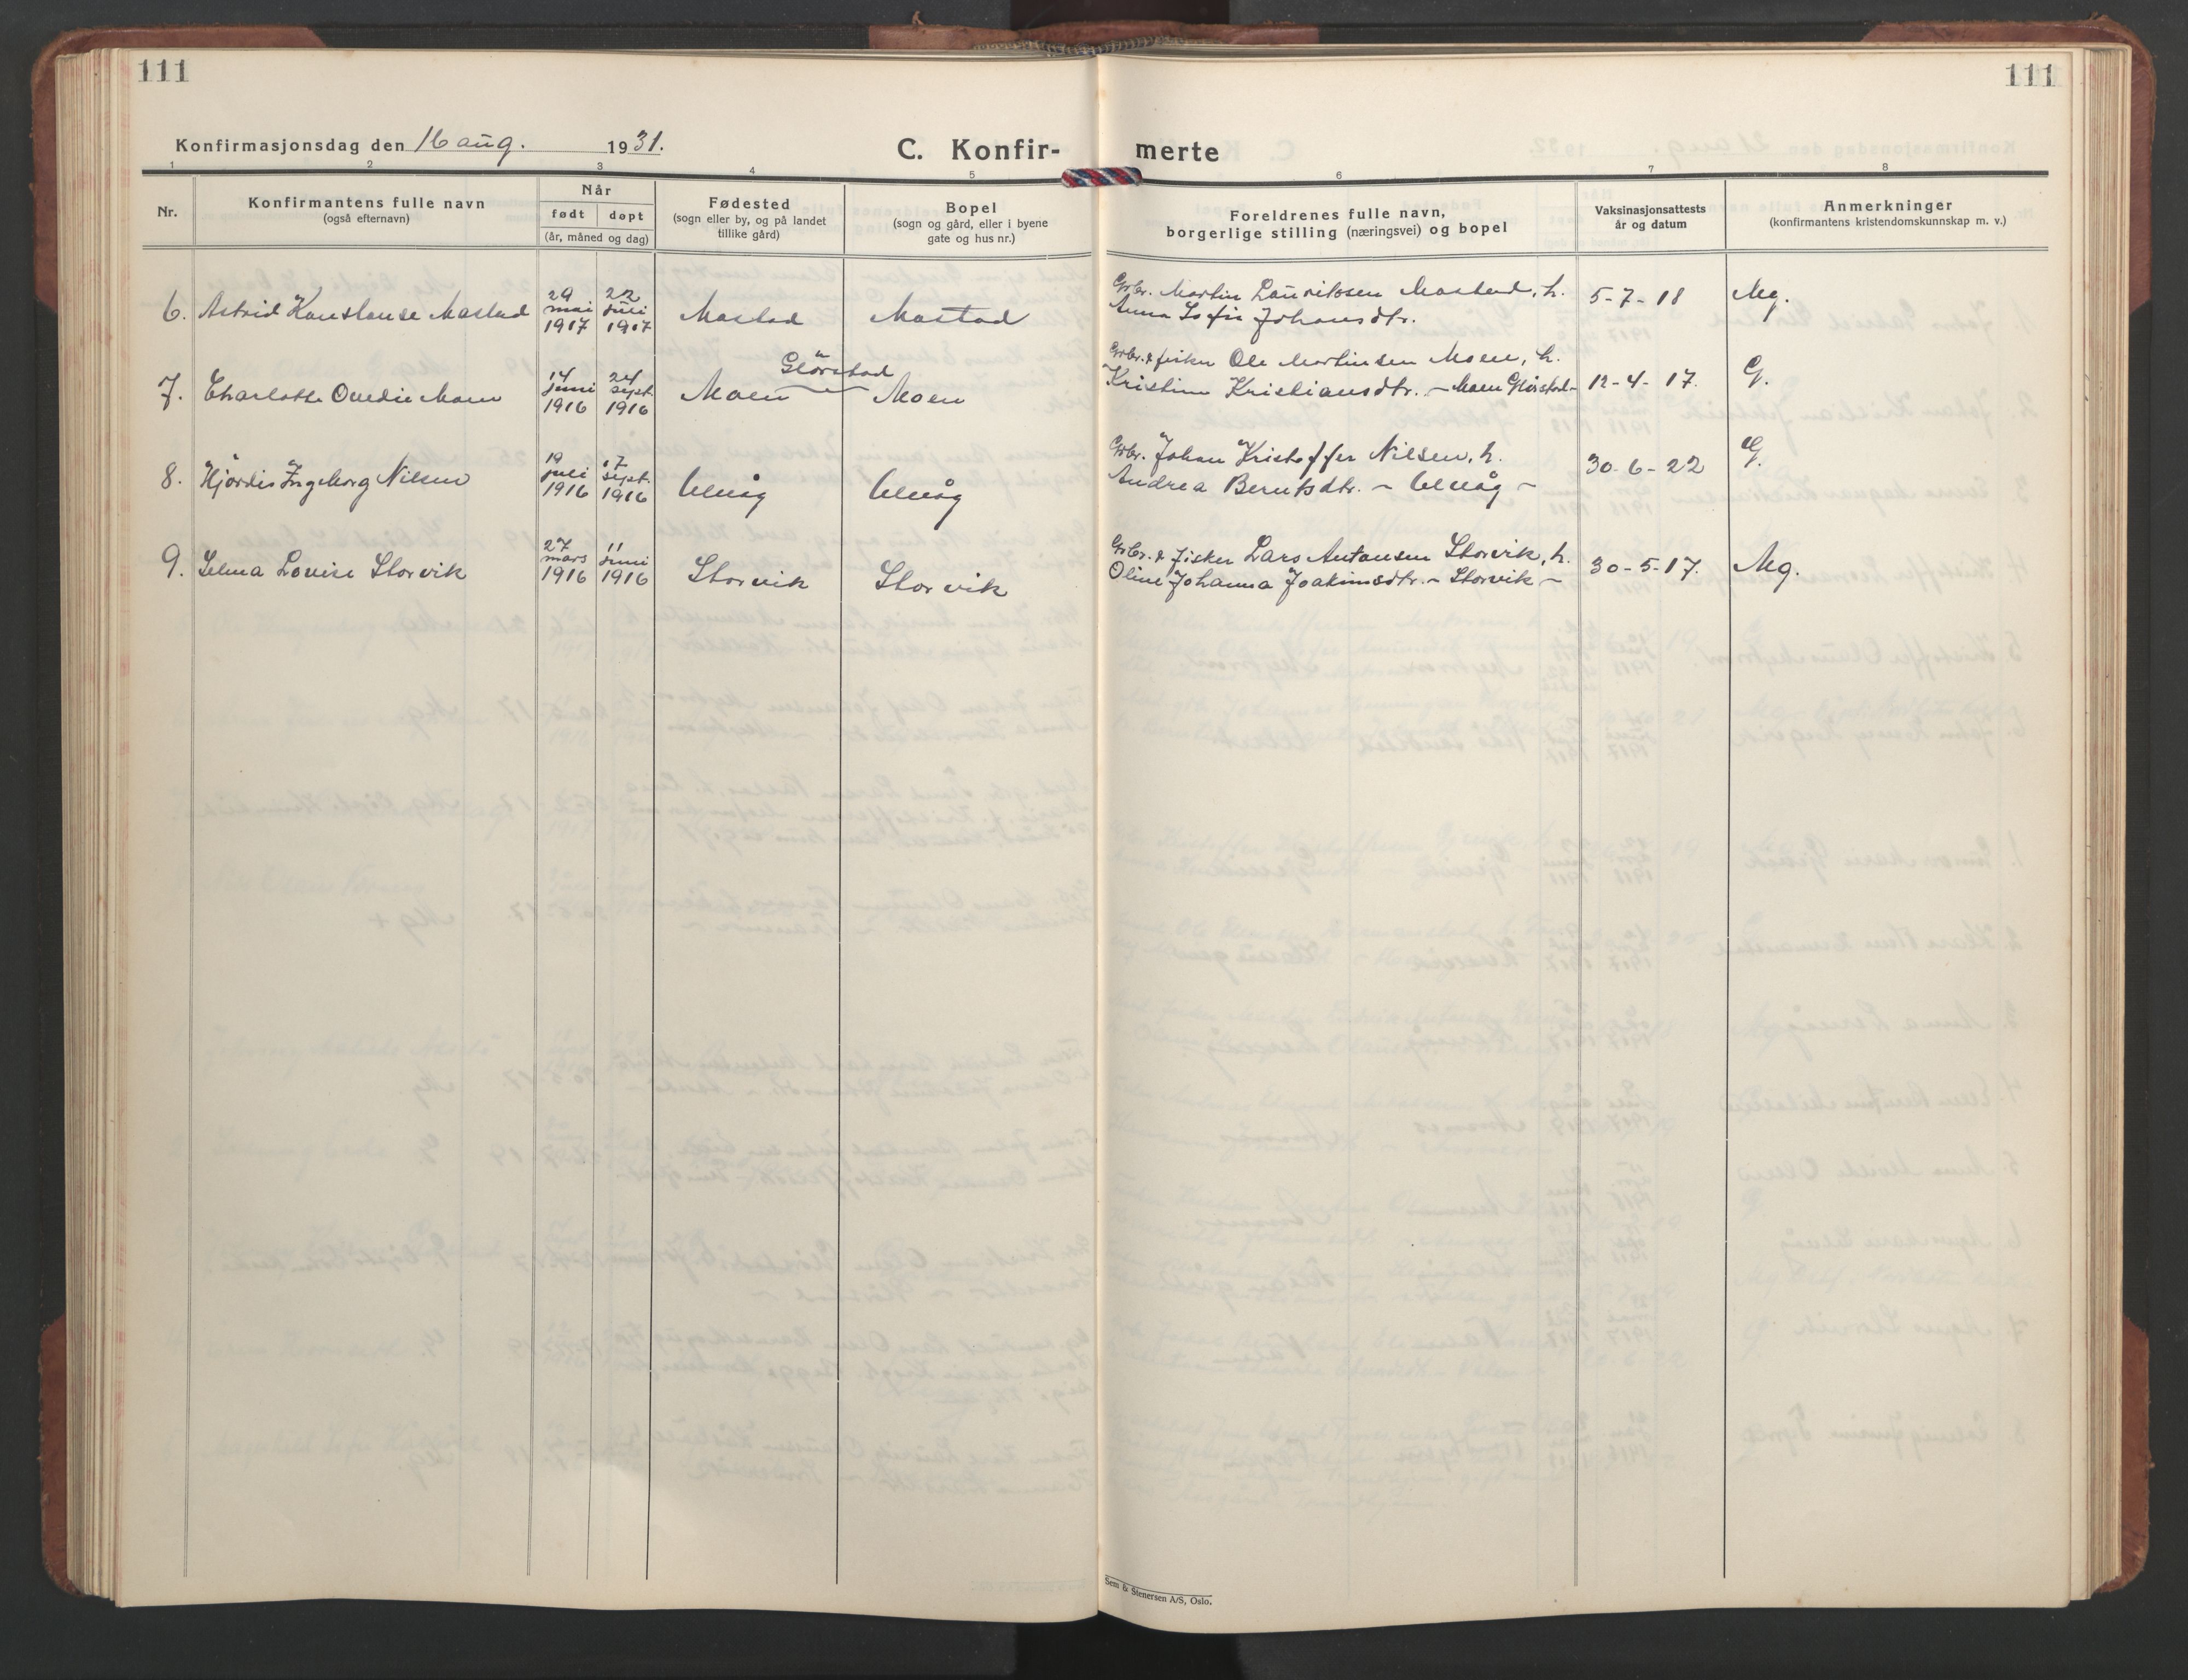 111
111
Konfirmasjonsdag den 16 aug. 1931.
C. Konfir-
merte
1 2 3 4 5 6 7 8
Nr.
Konfirmantens fulle navn
(også efternavn)
Når
født døpt
(år, måned og dag)
Fødested
(sogn eller by, og på landet
tillike gård)
Bopel
(sogn og gård, eller i byene
gate og hus nr.)
Foreldrenes fulle navn,
borgerlige stilling (næringsvei) og bopel
Vaksinasjonsattests
år og datum
Anmerkninger
(konfirmantens kristendomskunnskap m. v.)
6. Astrid Konstanse Mastad
29 mai 1917
22 juli 1917
Mastad
Mastad
Grbr. Martin Lauritssen Mastad, h.
Anna Sofie Johansdtr.
5-7-18
Mg.
7. Charlotte Ovedie Moen
14 juni 1916
24 sept. 1916
Glörstad
Moen
Moen
Grbr. & fisker Ole Martinsen Moen, h.
Kristine Kristiansdtr. - Moen Glörstad -
12-4-17.
G.
8. Hjördis Ingeborg Nilsen
19 juli 1916
17 sept. 1916
Ulvåg
Ulvåg
Grbr. Johan Kristoffer Nilsen, h.
Andrea Berntsdtr. - Ulvåg -
30-6-22
G.
9. Selma Lovise Storvik
27 mars 1916
11 juni 1916
Storvik
Storvik
Grbr. & fisker Lars Antonsen Storvik, h.
Oline Johanna Joakimsdtr. - Storvik -
30-5-17.
Mg.
Sem & Stenersen A/S, Oslo.